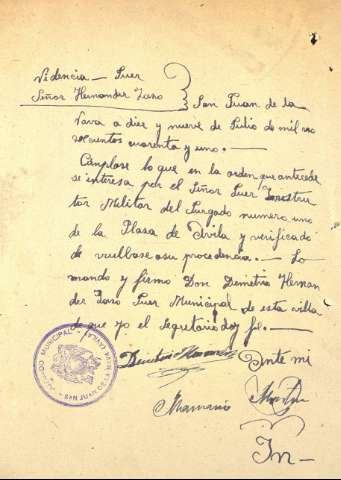 Videncia — Juer
Señor Hernander Jaso San Juan de la
Nava a dier y nueve de Julio de mil no
vecientos cuarenta y uno. —
Cúnplase lo que en la orden que antecede
se interesa por el Señor Juer Instruc
tor Militar del Jurgado numero uno
de la Plasa de Avila y verificado
de vuelbase a su procedencia. — Lo
mando y firmo Don Demetrio Hernan
der Jaso Juer Municipal de esta villa
de que yo el Segretario doy fe. —
Demetrio Hernander Ante mi
Mamerto Martin
JUZGADO MUNICIPAL
SAN JUAN DE LA NAVA (AVILA)